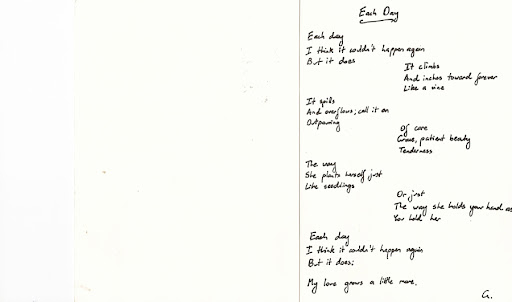 Each Day
Each day
I think it couldn't happen again
But it does
It climbs
And inches toward forever
Like a vine
It spills
And overflows; call it an
Outpouring
Of care
Grave, patient beauty
Tenderness
The way
She plants herself just
Like seedlings
Or just
The way she holds your hand as
You hold her
Each day
I think it couldn't happen again
But it does:
My love grows a little more.
G.